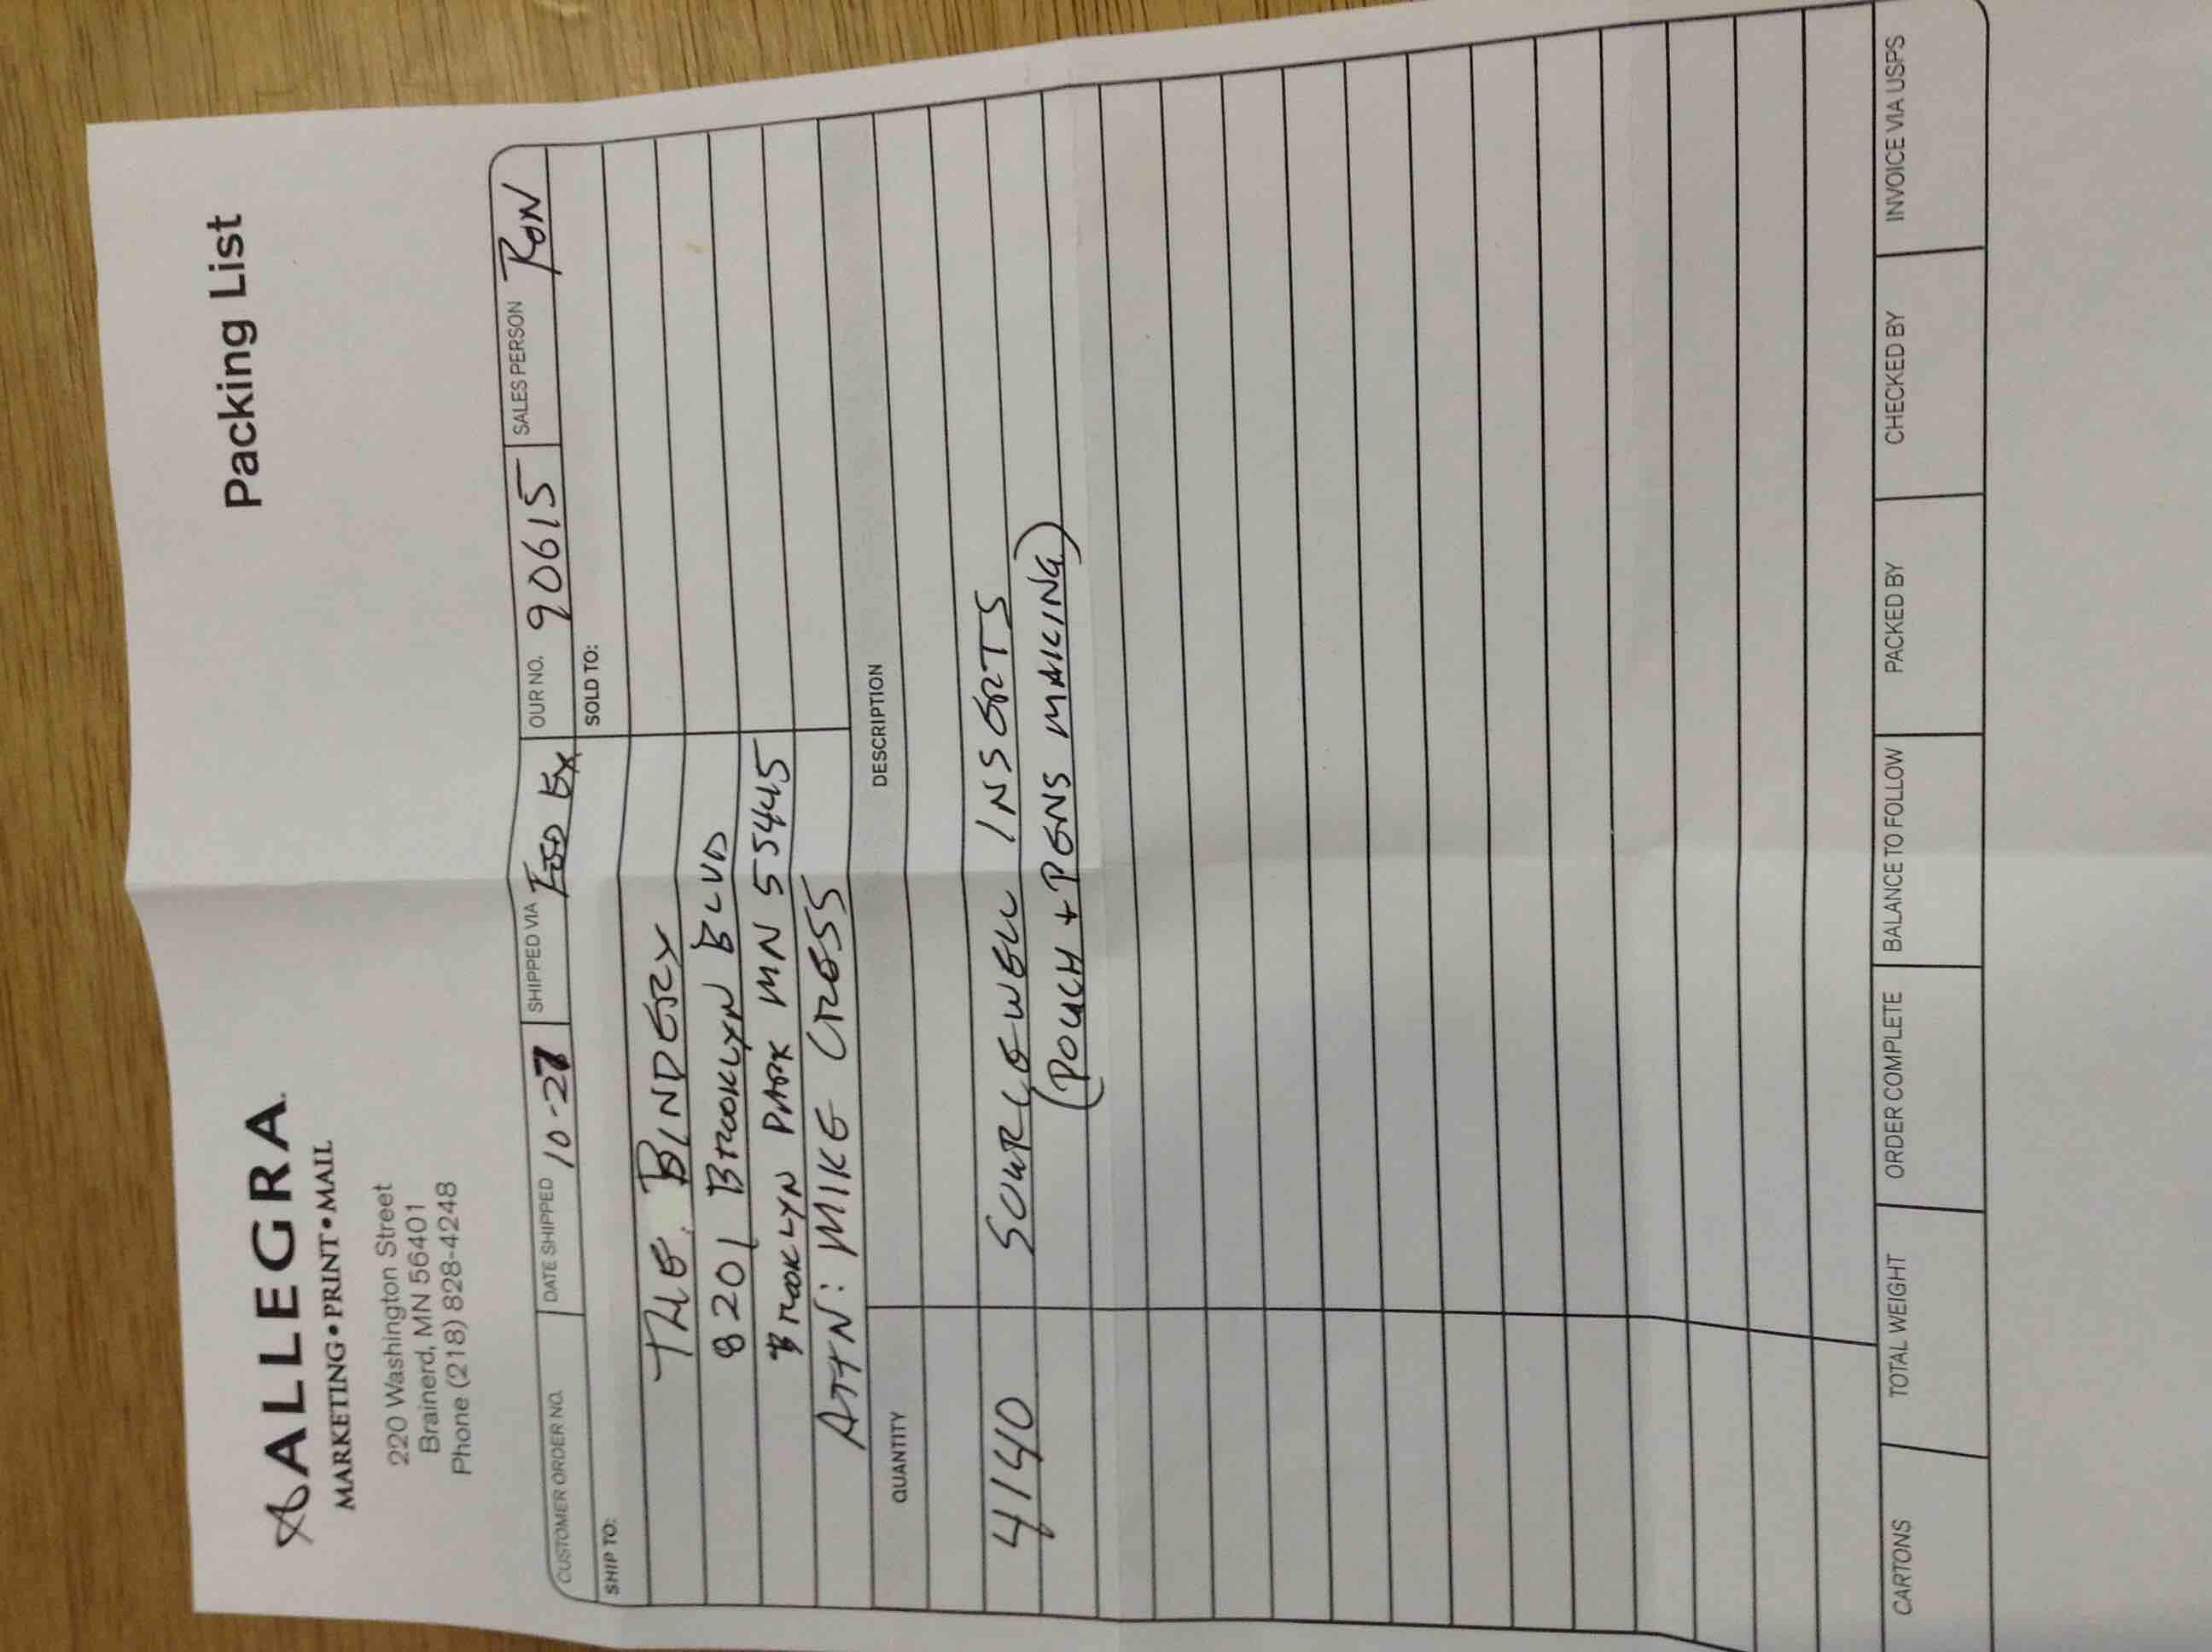 ALLEGRA
MARKETING•PRINT•MAIL
Packing List
220 Washington Street
Brainerd, MN 56401
Phone (218) 828-4248
CUSTOMER ORDER NO. DATE SHIPPED 10-27 SHIPPED VIA FED EX OUR NO. 90615 SALES PERSON RON
SHIP TO: SOLD TO:
THE BINDERY
8201 BROOKLYN BLVD
BROOKLYN PARK MN 55445
ATTN: MIKE CRESS
QUANTITY DESCRIPTION
4140 SOURCEWELL INSERTS
(POUCH + PENS MAILING)
CARTONS TOTAL WEIGHT ORDER COMPLETE BALANCE TO FOLLOW PACKED BY CHECKED BY INVOICE VIA USPS